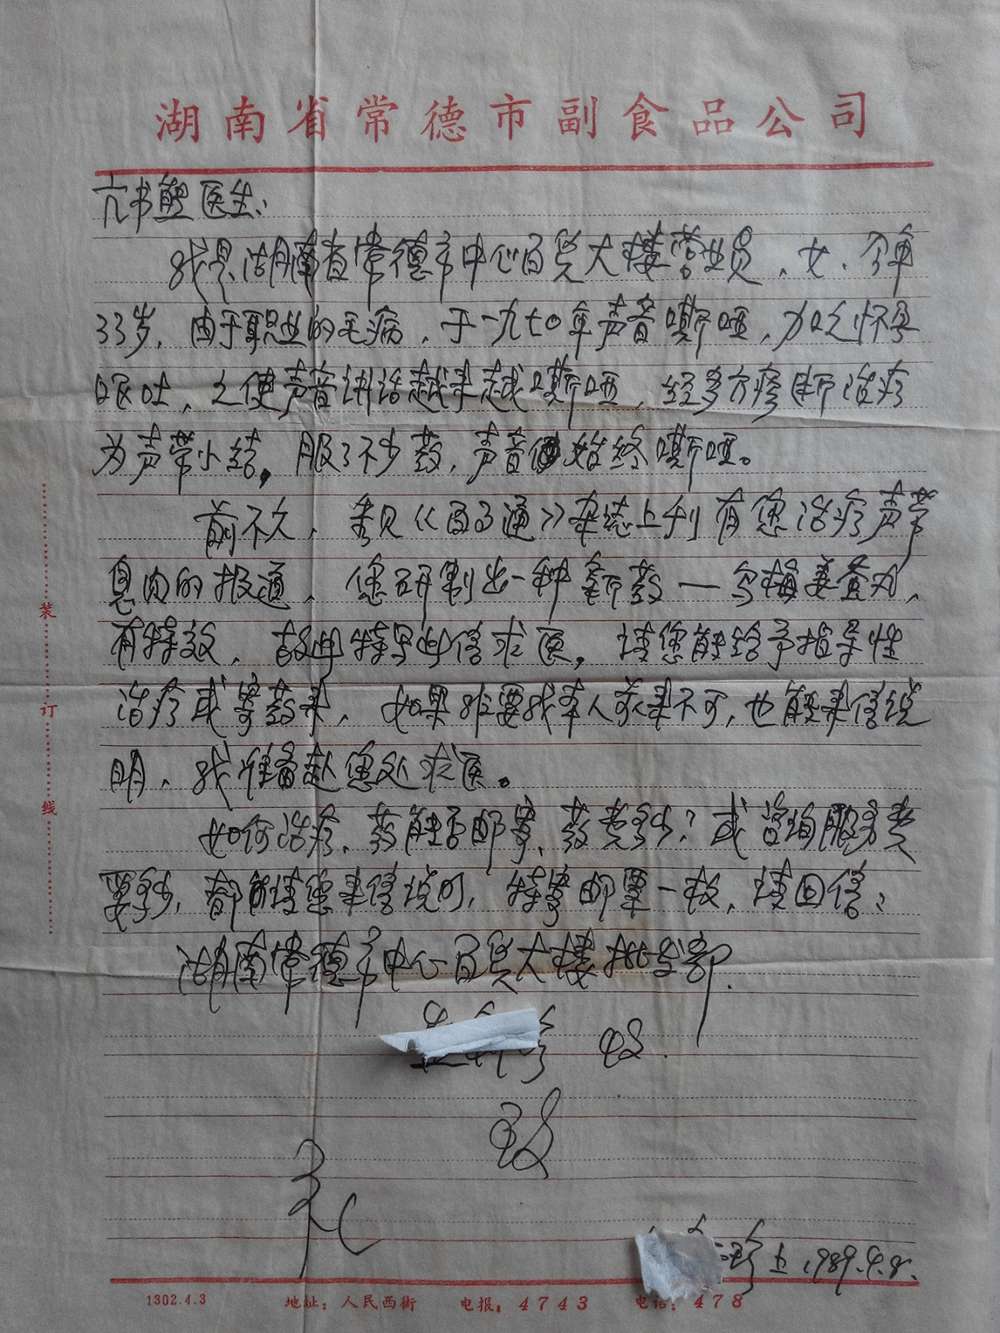 湖南省常德市副食品公司
亢书熊医生：
我是湖南省常德市中心百货大楼营业员，女，今年
33岁，由于职业的毛病，于一九七〇年声音嘶哑，加之怀孕
呕吐，之使声音讲话越来越嘶哑，经多方疹断治疗
为声带小结。服了不少药，声音始终嘶哑。
前不久，看见《百事通》杂志上刊有您治疗声带
息肉的报道，您研制出一种新药——乌梅
有特效，故特写此信求医，请您能给予指导性
治疗或寄药来，如果非要我本人前来不可，也能来信说
明，我准备赴您处求医。
如何治疗，药能否邮寄，药费多少？或咨询服务费
要多少，都请您来信说明，特寄邮票一枚，请回信：
湖南常德市中心百货大楼批发部．
收．
致
礼
珍上 1989.9.8.
装订线
1302.4.3
地址：人民西街 电报：4743 电话：478